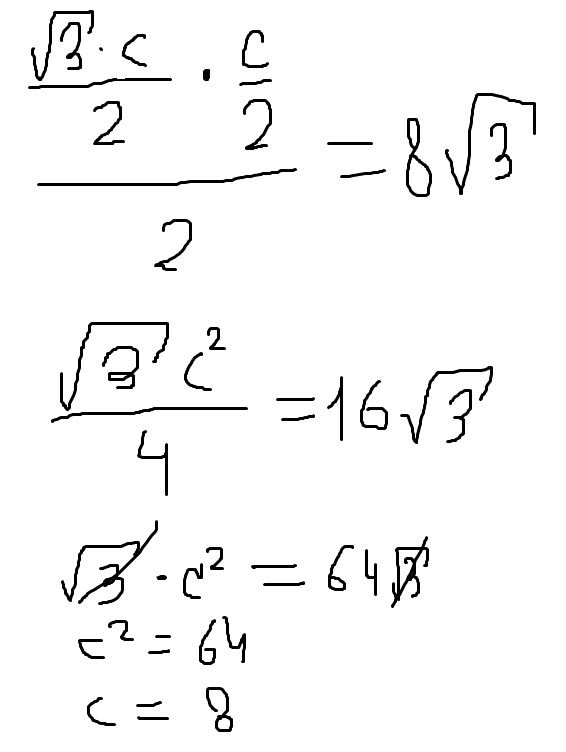 ((√3·c)/2 · c/2)/2 = 8√3
(√3 c²)/4 = 16√3
√3 · c² = 64√3
c² = 64
c = 8